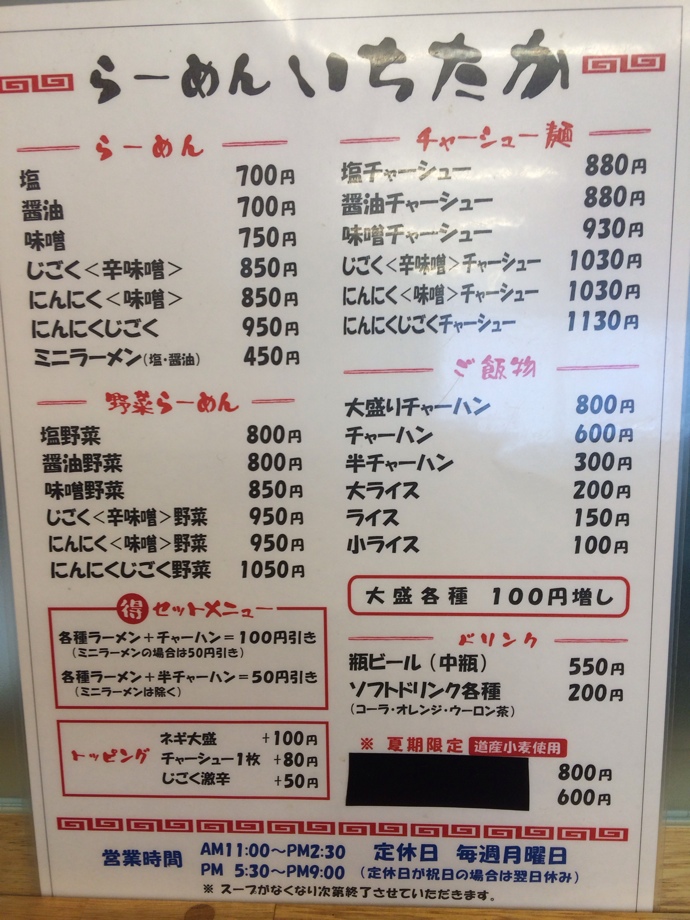 らーめん いちたか
らーめん
塩 700円
醤油 700円
味噌 750円
じごく＜辛味噌＞ 850円
にんにく＜味噌＞ 850円
にんにくじごく 950円
ミニラーメン(塩・醤油) 450円
野菜らーめん
塩野菜 800円
醤油野菜 800円
味噌野菜 850円
じごく＜辛味噌＞野菜 950円
にんにく＜味噌＞野菜 950円
にんにくじごく野菜 1050円
得 セットメニュー
各種ラーメン＋チャーハン＝100円引き
（ミニラーメンの場合は50円引き）
各種ラーメン＋半チャーハン＝50円引き
（ミニラーメンは除く）
トッピング
ネギ大盛 +100円
チャーシュー1枚 +80円
じごく激辛 +50円
チャーシュー麺
塩チャーシュー 880円
醤油チャーシュー 880円
味噌チャーシュー 930円
じごく＜辛味噌＞チャーシュー 1030円
にんにく＜味噌＞チャーシュー 1030円
にんにくじごくチャーシュー 1130円
ご飯物
大盛りチャーハン 800円
チャーハン 600円
半チャーハン 300円
大ライス 200円
ライス 150円
小ライス 100円
大盛各種 100円増し
ドリンク
瓶ビール（中瓶） 550円
ソフトドリンク各種 200円
（コーラ・オレンジ・ウーロン茶）
※ 夏期限定 道産小麦使用
800円
600円
営業時間 AM11:00～PM2:30
PM 5:30～PM9:00
定休日 毎週月曜日
（定休日が祝日の場合は翌日休み）
※ スープがなくなり次第終了させていただきます。